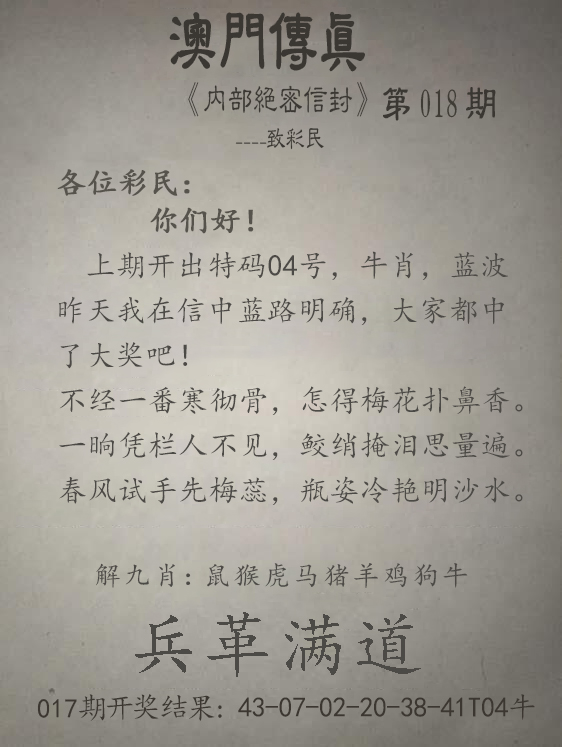 澳門傳真
《内部絕密信封》第018期
----致彩民
各位彩民：
你们好！
上期开出特码04号，牛肖，蓝波
昨天我在信中蓝路明确，大家都中
了大奖吧！
不经一番寒彻骨，怎得梅花扑鼻香。
一晌凭栏人不见，鲛绡掩泪思量遍。
春风试手先梅蕊，瓶姿冷艳明沙水。
解九肖：鼠猴虎马猪羊鸡狗牛
兵革满道
017期开奖结果：43-07-02-20-38-41T04牛